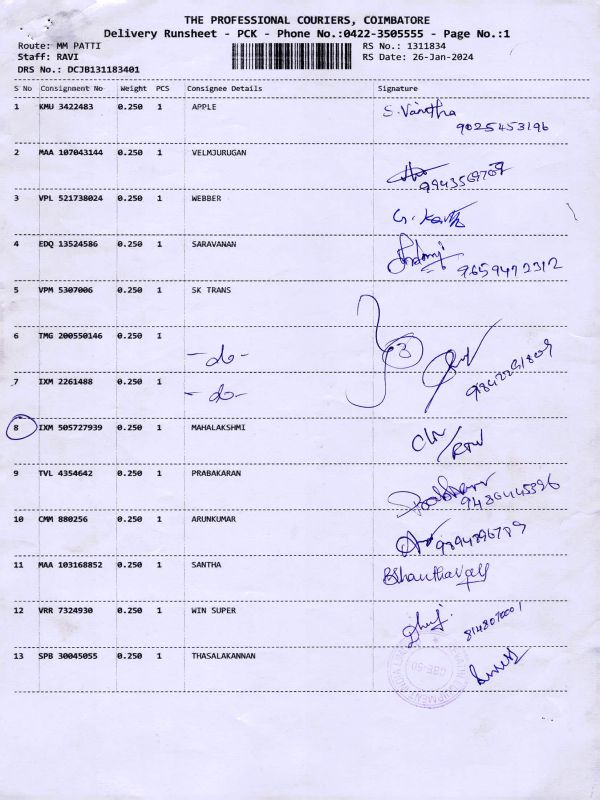 THE PROFESSIONAL COURIERS, COIMBATORE
Delivery Runsheet - PCK - Phone No.:0422-3505555 - Page No.:1
Route: MM PATTI RS No.: 1311834
Staff: RAVI RS Date: 26-Jan-2024
DRS No.: DCJB131183401
S No Consignment No Weight PCS Consignee Details Signature
1 KMU 3422483 0.250 1 APPLE
9025453196
2 MAA 107043144 0.250 1 VELMJURUGAN
3 VPL 521738024 0.250 1 WEBBER
4 EDQ 13524586 0.250 1 SARAVANAN
5 VPM 5307006 0.250 1 SK TRANS
6 TMG 200550146 0.250 1 -do- 3
7 IXM 2261488 0.250 1 -do-
8 IXM 505727939 0.250 1 MAHALAKSHMI
9 TVL 4354642 0.250 1 PRABAKARAN
10 CMM 880256 0.250 1 ARUNKUMAR
9894896789
11 MAA 103168852 0.250 1 SANTHA
12 VRR 7324930 0.250 1 WIN SUPER
13 SPB 30045055 0.250 1 THASALAKANNAN